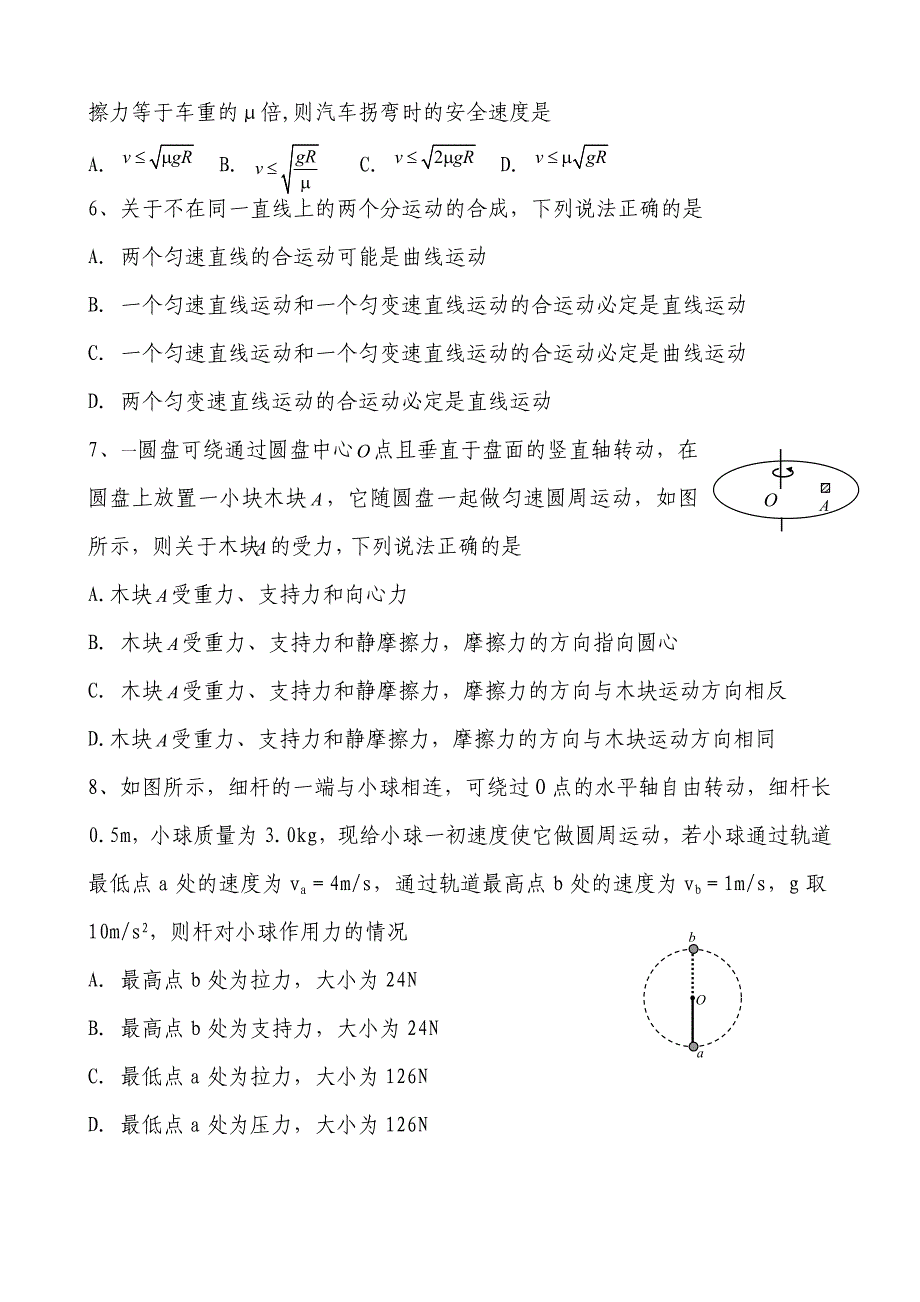 擦力等于车重的μ倍,则汽车拐弯时的安全速度是
A. v≤√μgR B. v≤√(gR/μ) C. v≤√2μgR D. v≤μ√gR
6、关于不在同一直线上的两个分运动的合成，下列说法正确的是
A. 两个匀速直线的合运动可能是曲线运动
B. 一个匀速直线运动和一个匀变速直线运动的合运动必定是直线运动
C. 一个匀速直线运动和一个匀变速直线运动的合运动必定是曲线运动
D. 两个匀变速直线运动的合运动必定是直线运动
7、一圆盘可绕通过圆盘中心O点且垂直于盘面的竖直轴转动，在
圆盘上放置一小块木块A，它随圆盘一起做匀速圆周运动，如图
所示，则关于木块A的受力，下列说法正确的是
O
A
A.木块A受重力、支持力和向心力
B. 木块A受重力、支持力和静摩擦力，摩擦力的方向指向圆心
C. 木块A受重力、支持力和静摩擦力，摩擦力的方向与木块运动方向相反
D.木块A受重力、支持力和静摩擦力，摩擦力的方向与木块运动方向相同
8、如图所示，细杆的一端与小球相连，可绕过O点的水平轴自由转动，细杆长
0.5m，小球质量为3.0kg，现给小球一初速度使它做圆周运动，若小球通过轨道
最低点a处的速度为vₐ=4m/s，通过轨道最高点b处的速度为v_b=1m/s，g取
10m/s²，则杆对小球作用力的情况
A. 最高点b处为拉力，大小为24N
B. 最高点b处为支持力，大小为24N
C. 最低点a处为拉力，大小为126N
D. 最低点a处为压力，大小为126N
b
O
a